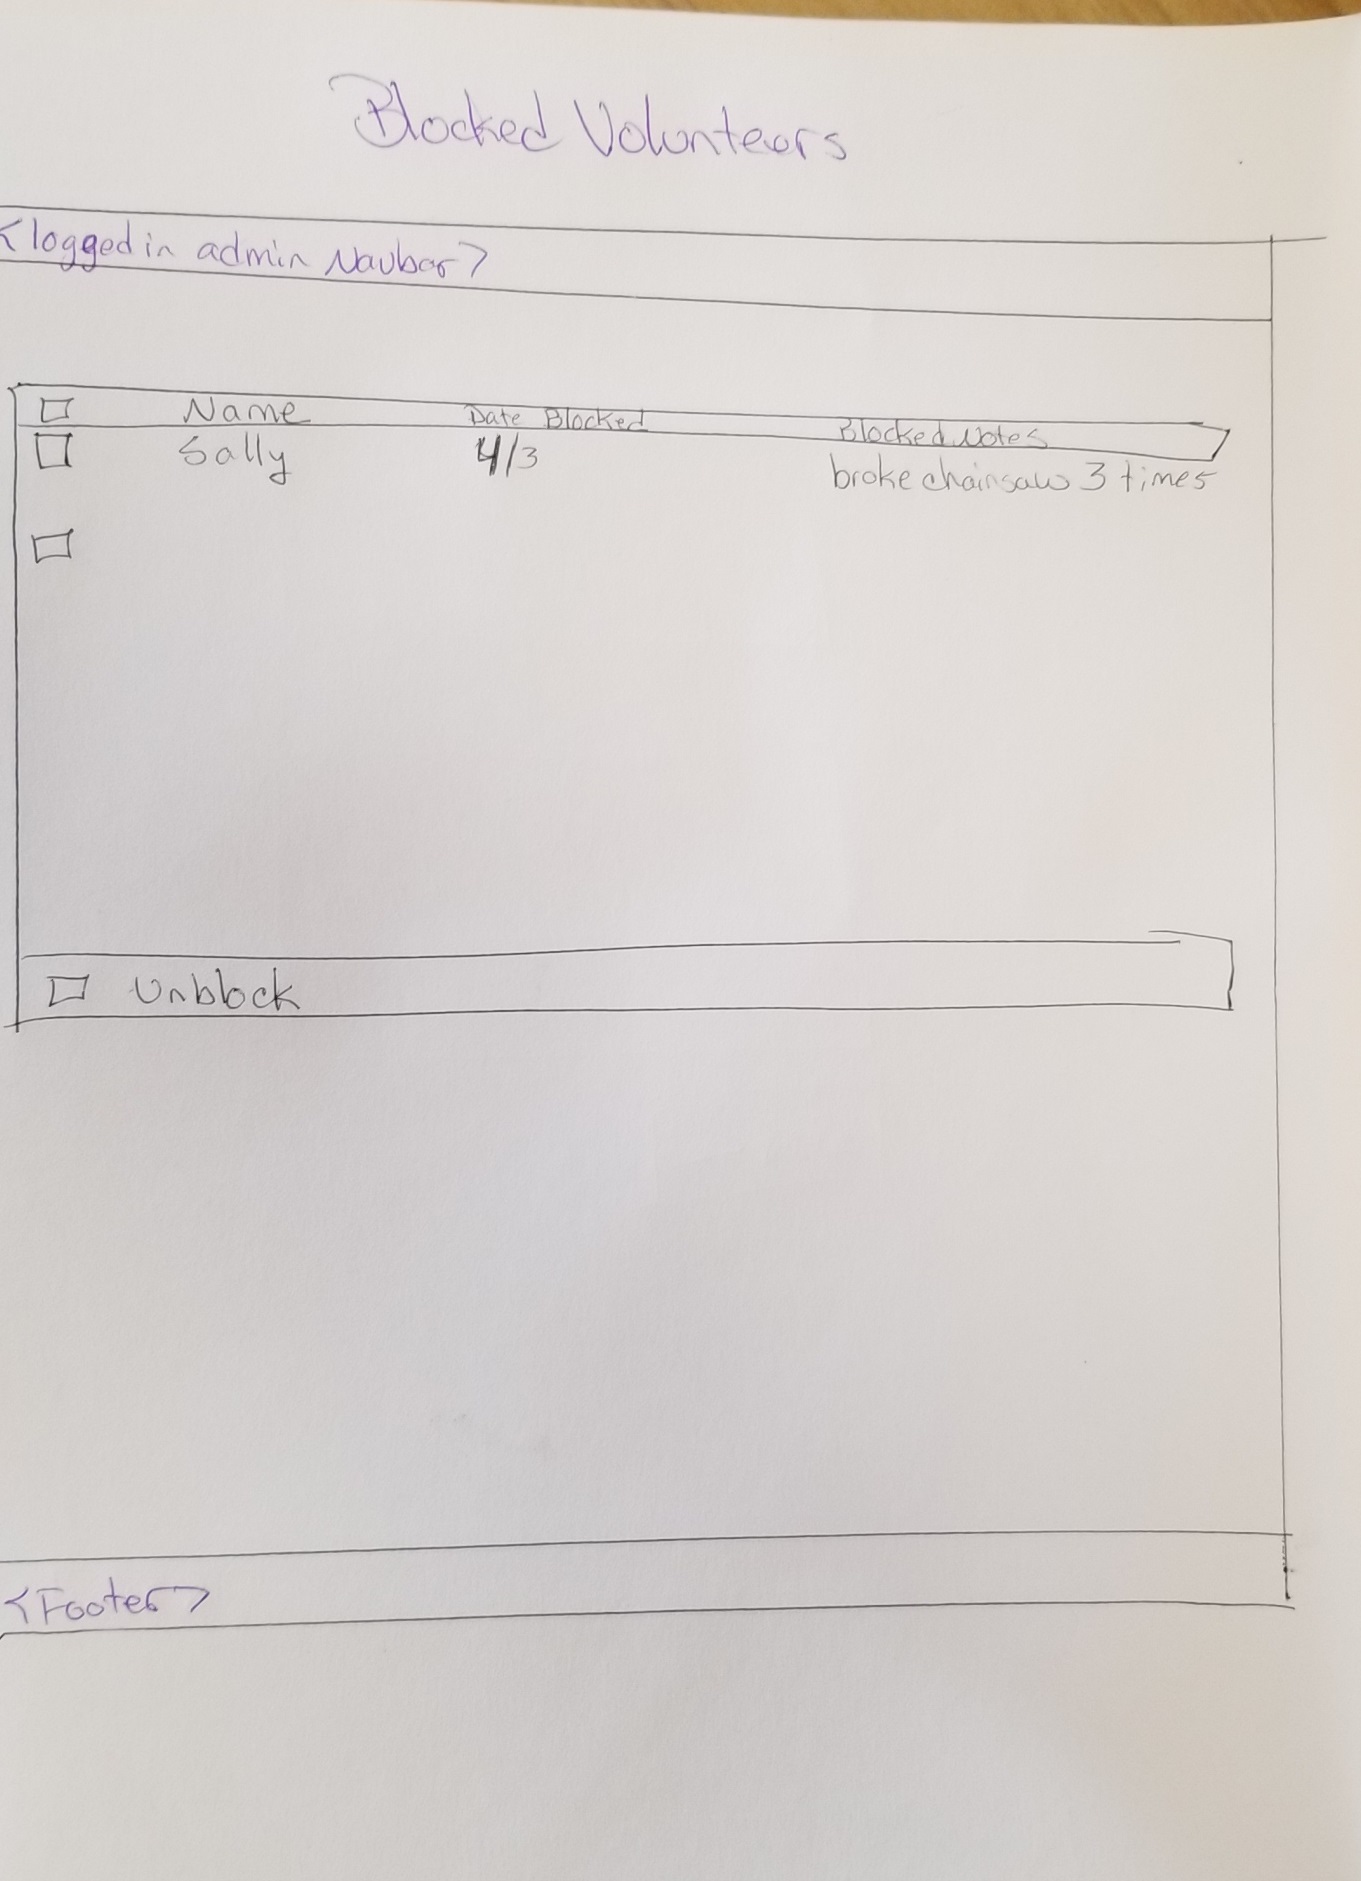 Blocked Volunteers
<logged in admin Navbar>
Name Date Blocked Blocked Notes
Sally 4/3 broke chainsaw 3 times
Unblock
<Footer>